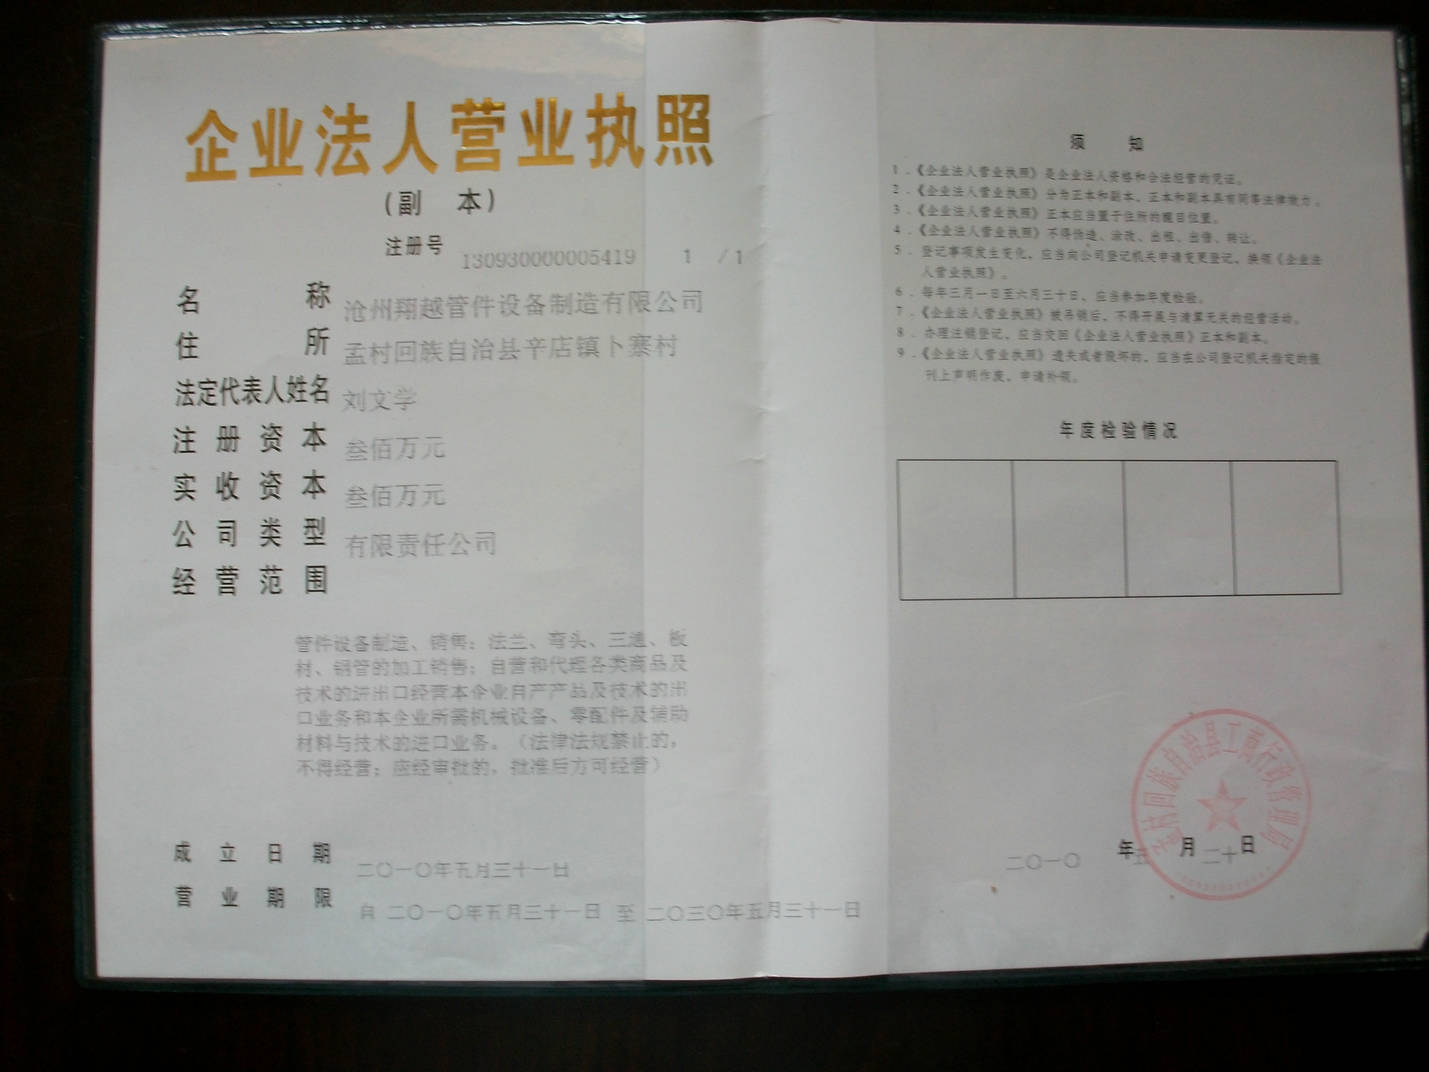 企业法人营业执照
(副 本)
注册号 130930000005419 1 /1
名称 沧州翔越管件设备制造有限公司
住所 孟村回族自治县辛店镇卜寨村
法定代表人姓名 刘文学
注册资本 叁佰万元
实收资本 叁佰万元
公司类型 有限责任公司
经营范围
管件设备制造、销售；法兰、弯头、三通、板
材、钢管的加工销售；自营和代理各类商品及
技术的进出口经营本企业自产产品及技术的出
口业务和本企业所需机械设备、零配件及辅助
材料与技术的进口业务。（法律法规禁止的，
不得经营；应经审批的，批准后方可经营）
成立日期 二〇一〇年五月三十一日
营业期限 自 二〇一〇年五月三十一日 至 二〇三〇年五月三十一日
须 知
1．《企业法人营业执照》是企业法人资格和合法经营的凭证。
2．《企业法人营业执照》分为正本和副本，正本和副本具有同等法律效力。
3．《企业法人营业执照》正本应当置于住所的醒目位置。
4．《企业法人营业执照》不得伪造、涂改、出租、出借、转让。
5．登记事项发生变化，应当向公司登记机关申请变更登记，换领《企业法
人营业执照》。
6．每年三月一日至六月三十日，应当参加年度检验。
7．《企业法人营业执照》被吊销后，不得开展与清算无关的经营活动。
8．办理注销登记，应当交回《企业法人营业执照》正本和副本。
9．《企业法人营业执照》遗失或者毁坏的，应当在公司登记机关指定的报
刊上声明作废，申请补领。
年度检验情况
孟村回族自治县工商行政管理局
二〇一〇 年 五 月 二十 日